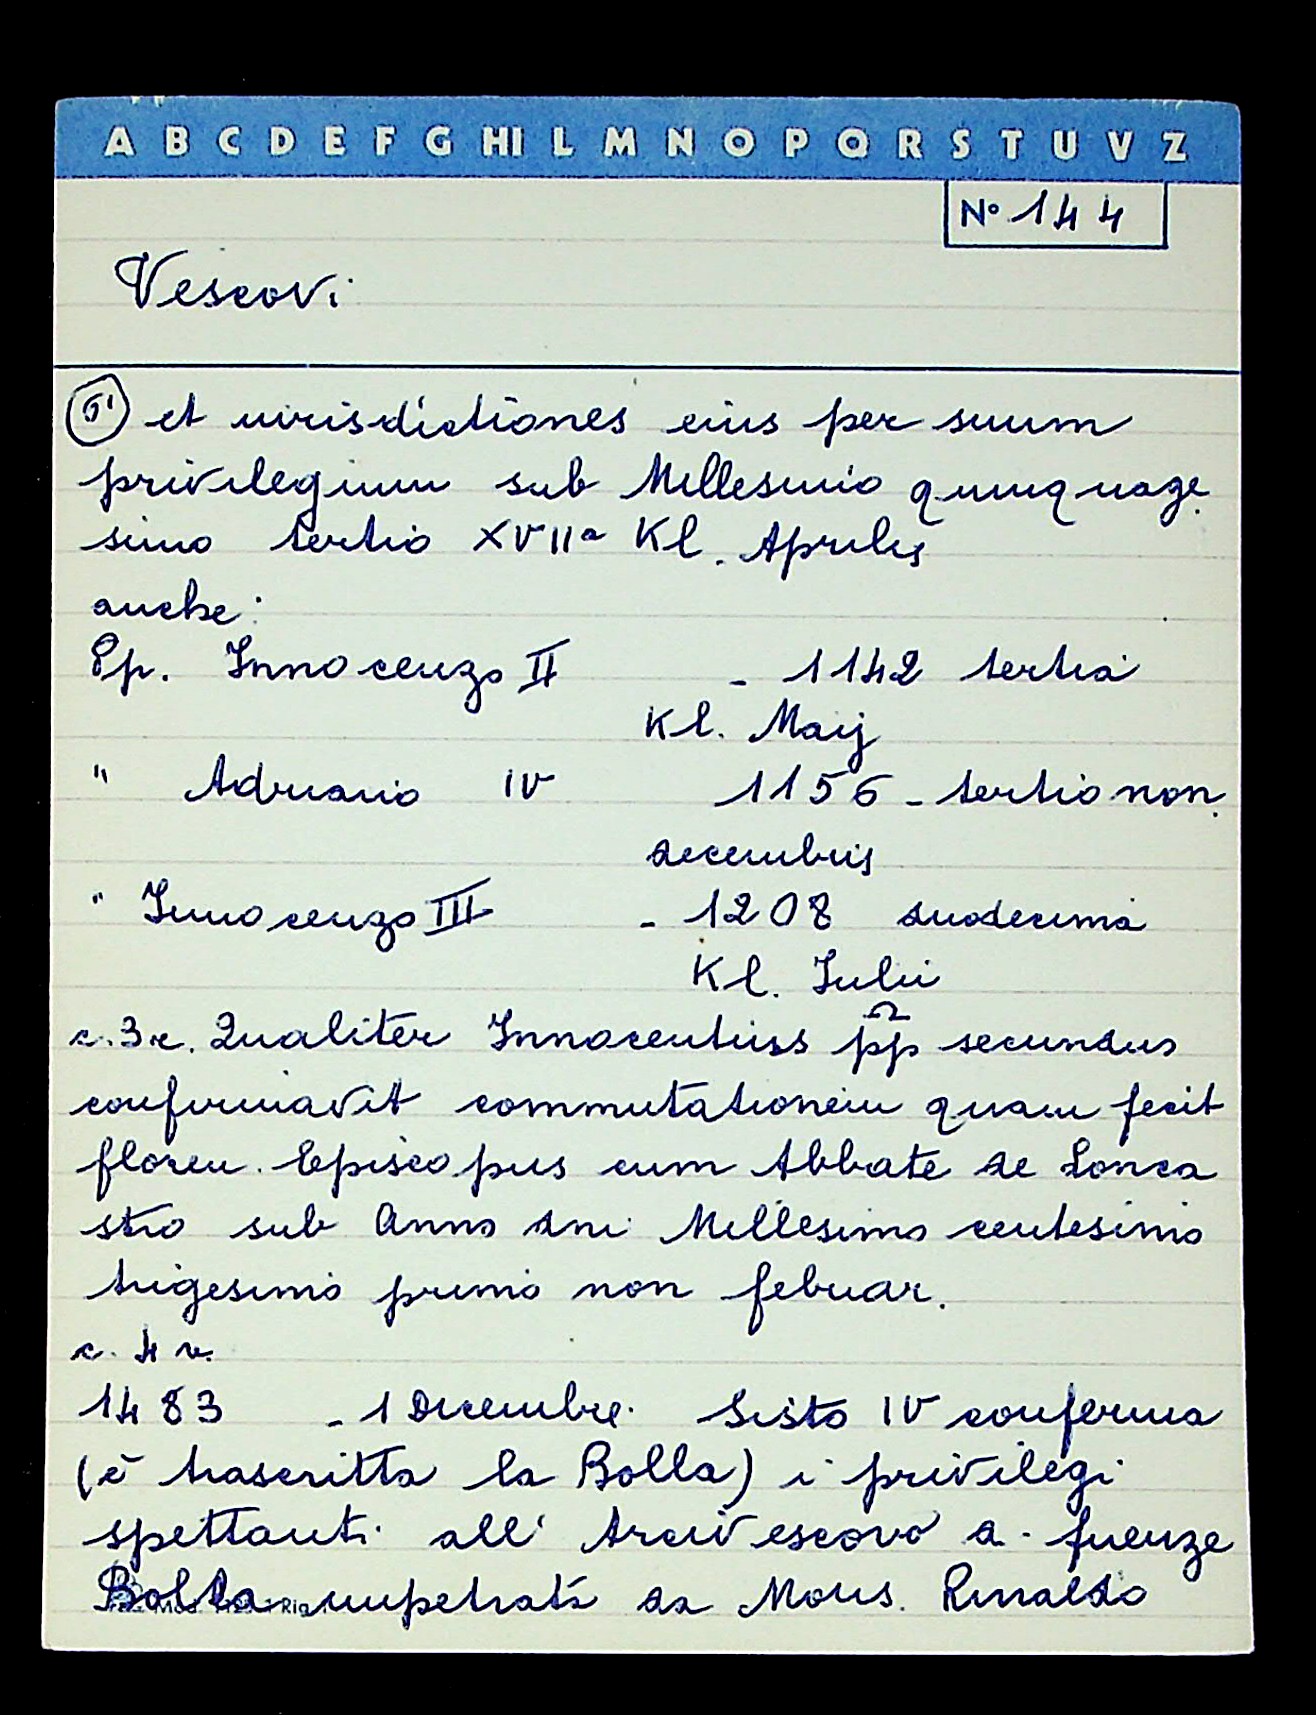 A B C D E F G HI L M N O P Q R S T U V Z
N° 144
Vescovi
5' et iurisdictiones eius per suum
privilegium sub Millesimo quinquage
simo tertio XVIIa Kl. Aprilis
anche:
Ep. Innocenzo II - 1142 tertia
Kl. Maij
" Adriano IV 1156 - tertio non.
decembris
" Innocenzo III - 1208 duodecima
Kl. Iulii
c. 3 r. Qualiter Innocentius pp secundus
confirmavit commutationem quam fecit
floren. Episcopus cum Abbate de Lonca
stro sub Anno dni Millesimo centesimo
trigesimo primo non febuar.
c. 4 v.
1483 - 1 Dicembre. Sisto IV conferma
(è trascritta la Bolla) i privilegi
spettanti all' Arcivescovo di firenze
Bolla impetrata da Mons. Rinaldo